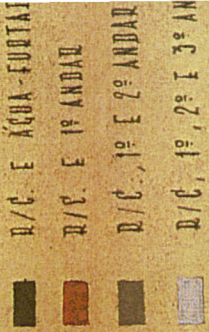 R/C. E ÁGUA-FURTA
R/C. E 1º ANDAR
R/C., 1º E 2º ANDAR
R/C, 1º, 2º E 3º AN